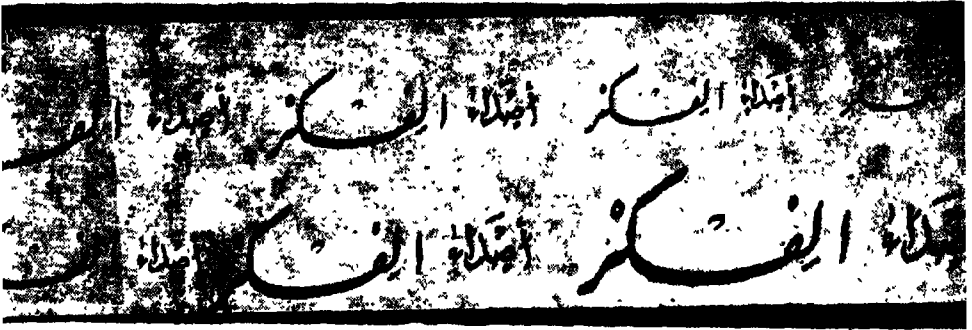 أصداء الفكر أصداء الفكر أصداء الف
أصداء الفكر أصداء الفكر أصداء الف